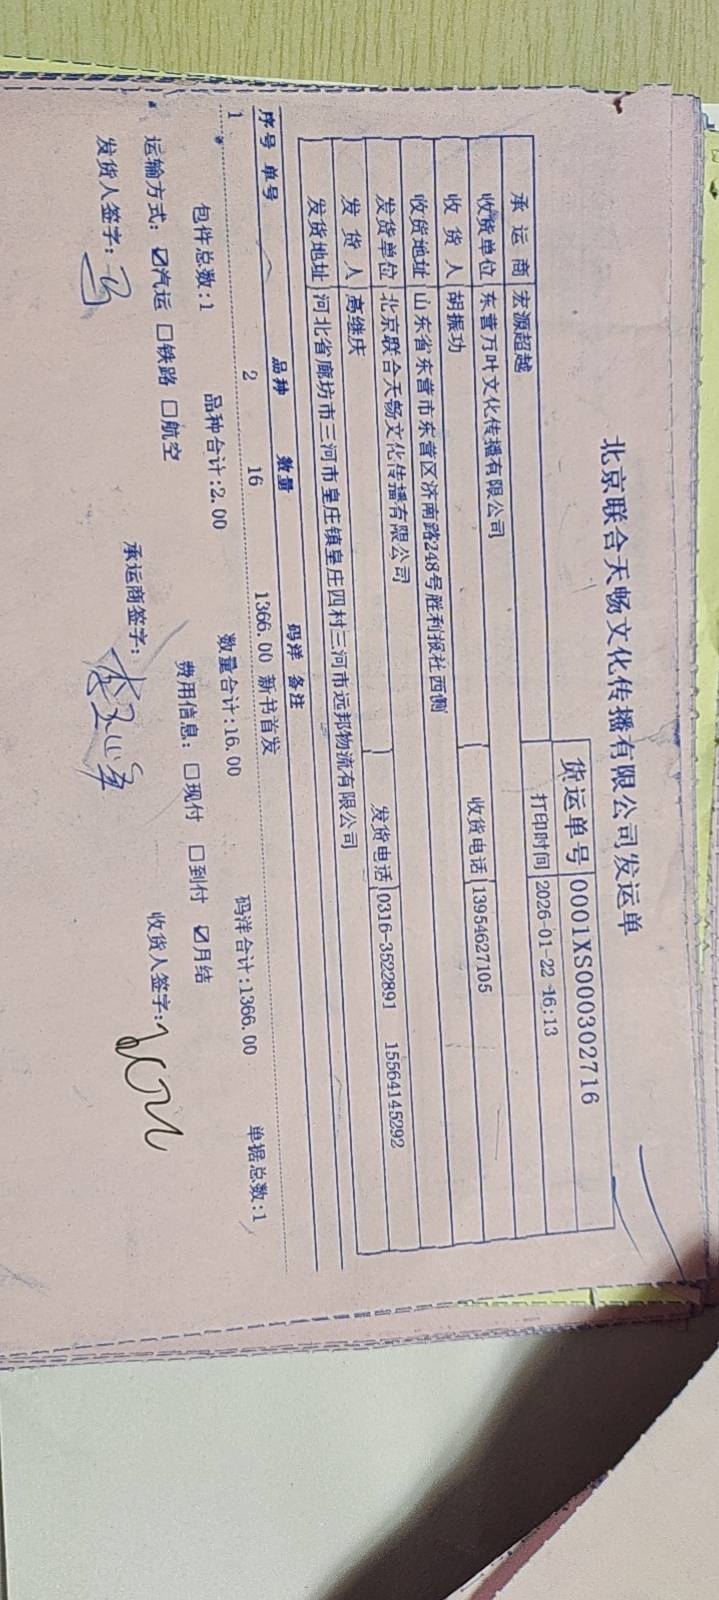 北京联合天畅文化传播有限公司发运单
货运单号 0001XS000302716
承运商 宏源超越 打印时间 2026-01-22 16:13
收货单位 东营万叶文化传播有限公司
收货人 胡振功 收货电话 13954627105
收货地址 山东省东营市东营区济南路248号胜利报社西侧
发货单位 北京联合天畅文化传播有限公司
发货人 高继庆 发货电话 0316-3522891 15564145292
发货地址 河北省廊坊市三河市皇庄镇皇庄四村三河市远邦物流有限公司
序号 单号 品种 数量 码洋 备注
1 2 16 1366.00 新书首发
包件总数:1 品种合计:2.00 数量合计:16.00 码洋合计:1366.00 单据总数:1
运输方式: ☑汽运 □铁路 □航空 费用信息: □现付 □到付 ☑月结
发货人签字: 承运商签字: 收货人签字: